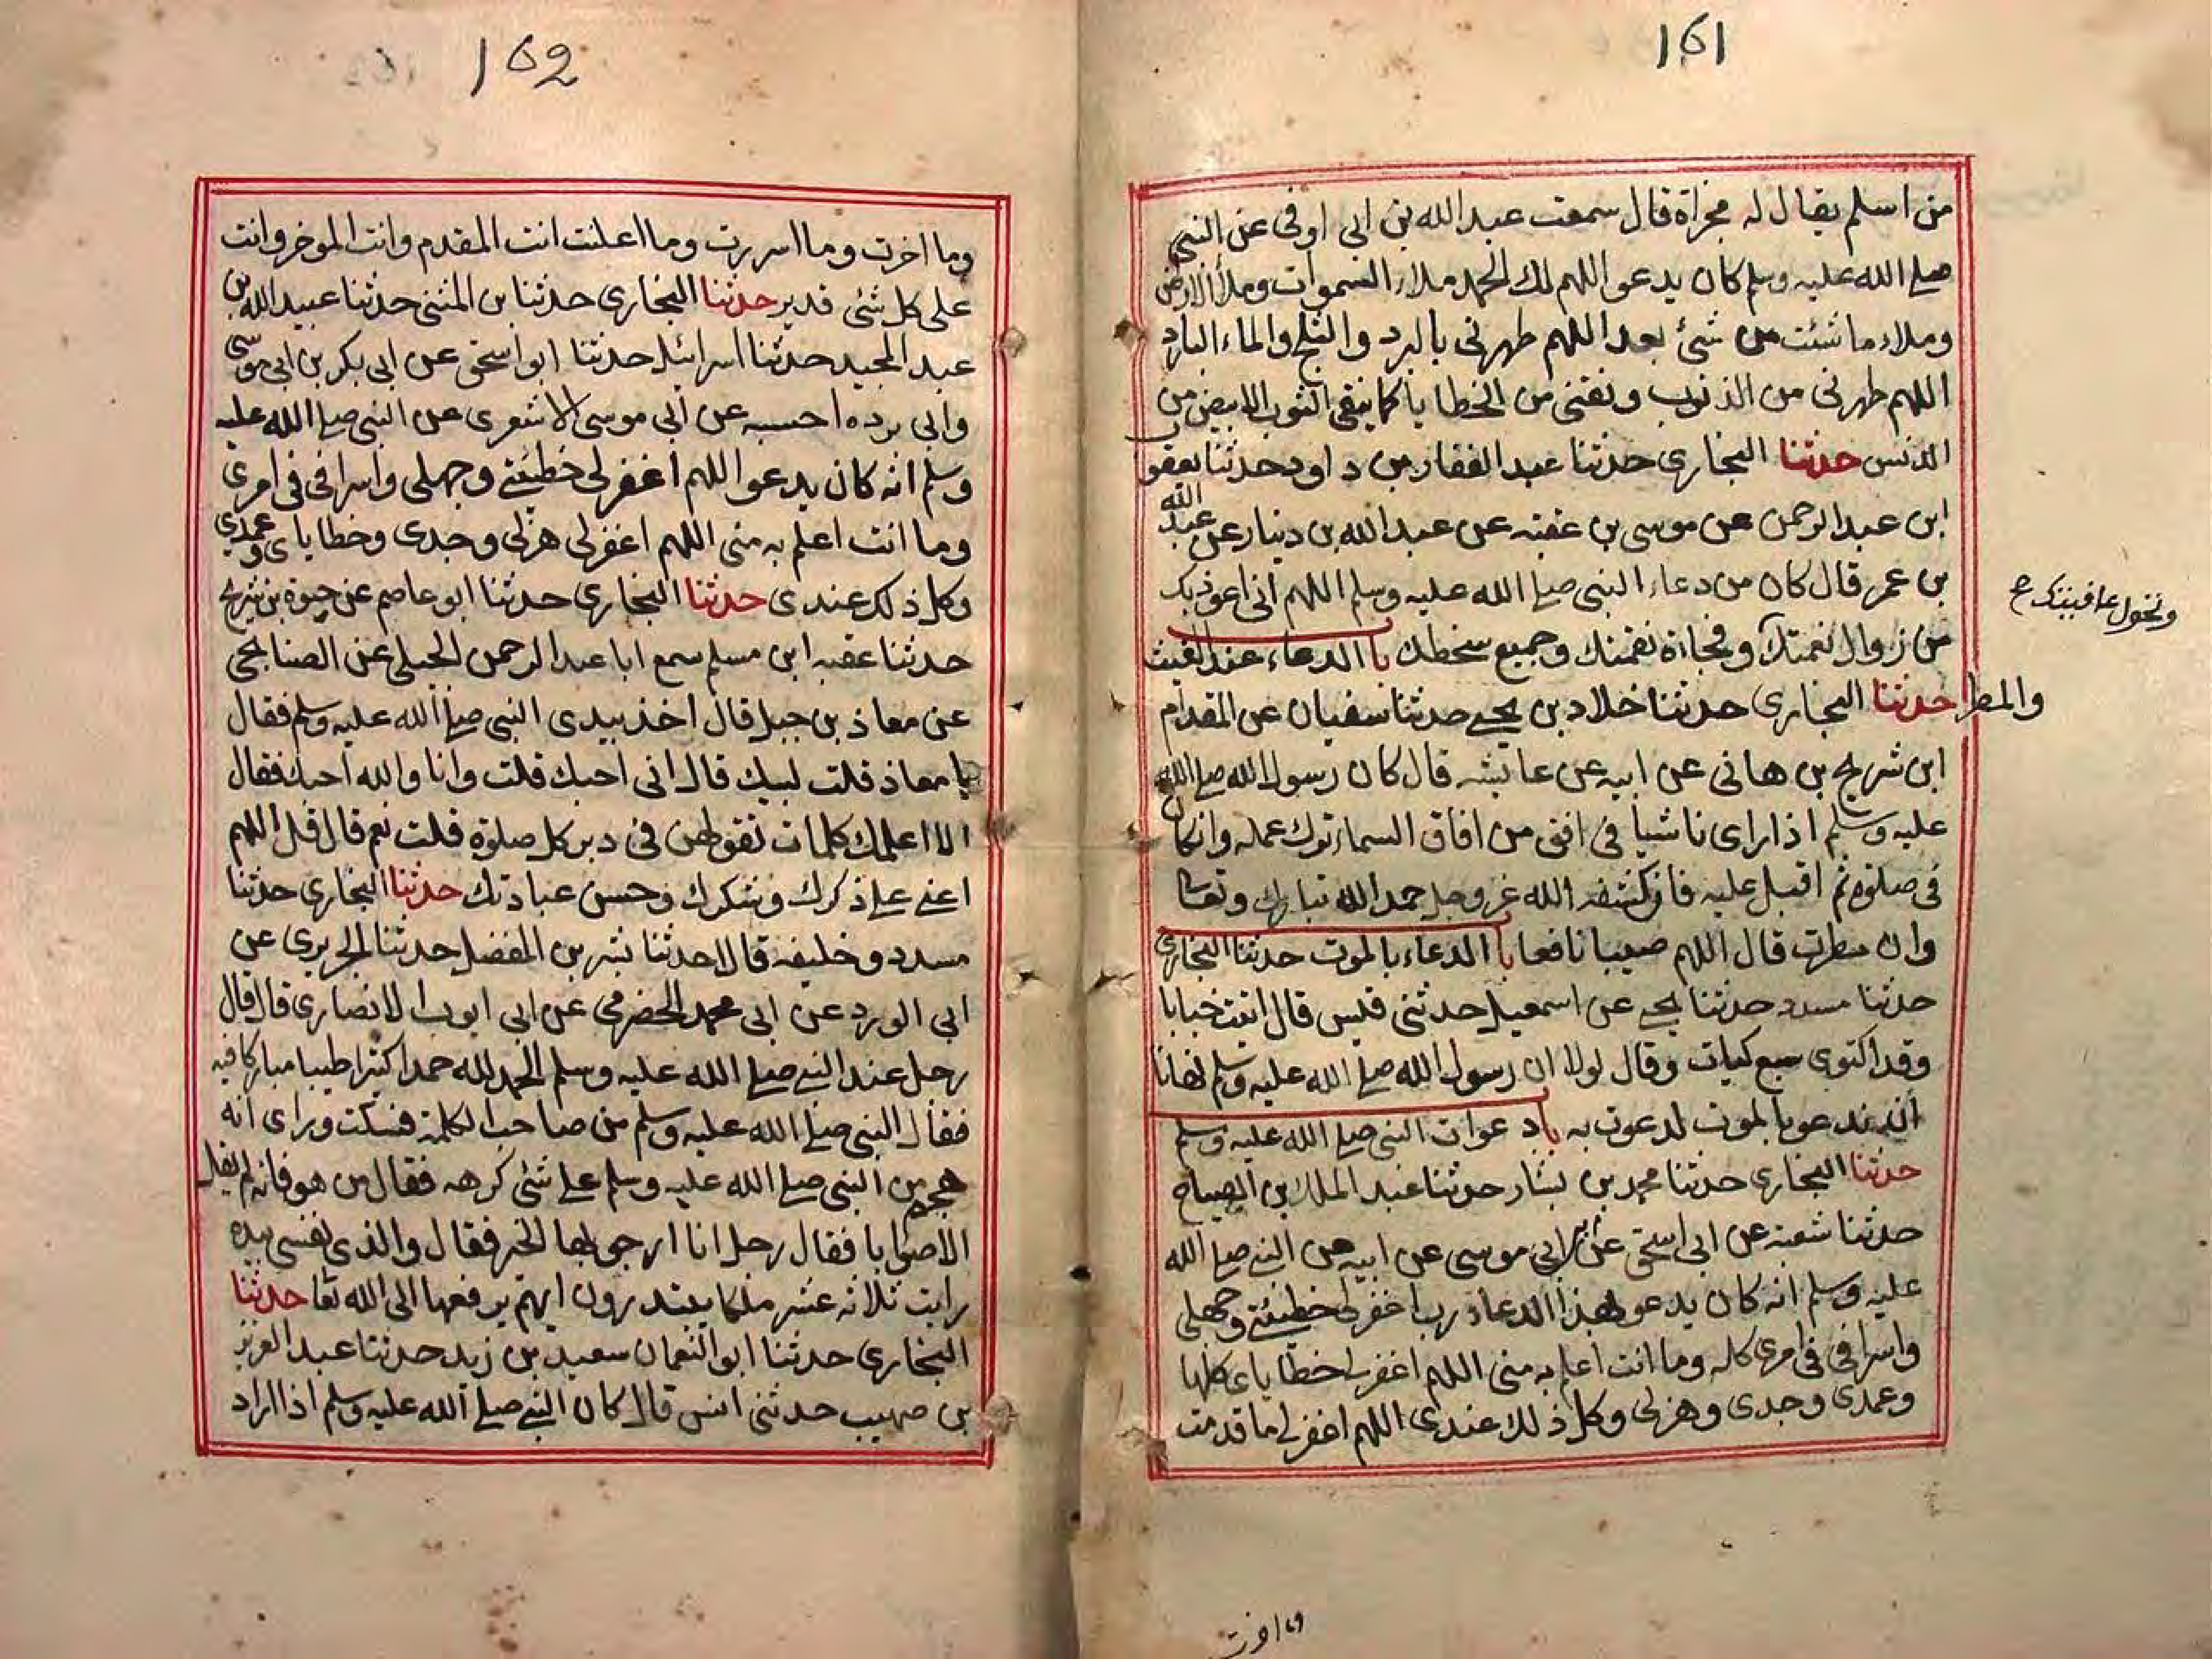 161
من اسلم يقال له مجزاة قال سمعت عبدالله بن ابى اوفى عن النبى
صلے الله عليه وسلم كان يدعو اللهم لك الحمد ملاء السموات وملأ الارض
وملاء ما شئت من شئ بعد اللهم طهرنى بالبرد والثلج والماء البارد
اللهم طهرنى من الذنوب ونقنى من الخطايا كما ينقى الثوب الابيض من
الدنس حدثنا البخارى حدثنا عبد الغفار بن داود حدثنا يعقوب
ابن عبد الرحمن عن موسى بن عقبه عن عبد الله بن دينار عن عبد الله
بن عمر قال كان من دعاء النبى صلے الله عليه وسلم اللهم انى اعوذ بك
وتحول عافيتك ع
من زوال نعمتك وفجاة نقمتك وجميع سخطك باالدعاء عند الغيث
والمطر حدثنا البخارى حدثنا خلاد بن يحيے حدثنا سفيان عن المقدام
ابن شريح بن هانى عن ابيه عن عايشه قال كان رسول الله صلے الله
عليه وسلم اذا راى ناشيا فى افق من افاق السماء ترك عمله وان كان
فى صلوة ثم اقبل عليه فان كشفه الله عز وجل حمد الله تبارك وتعالى
وان مطرت قال اللهم صيبا نافعا باالدعاء بالموت حدثنا البخارى
حدثنا مسدد حدثنا يحيے عن اسمعيل حدثنى قيس قال اتيت خبابا
وقد اكتوى سبع كيات وقال لولا ان رسول الله صلے الله عليه وسلم نهانا
ان ندعو بالموت لدعوت به باد عوات النبى صلے الله عليه وسلم
حدثنا البخارى حدثنا محمد بن بشار حدثنا عبد الملك بن الصباح
حدثنا شعبة عن ابى اسحق عن بن ابى موسى عن ابيه عن النبے صلے الله
عليه وسلم انه كان يدعو بهذا الدعاء رب اغفرلے خطيئتے وجهلى
واسرافى فى امرى كله وما انت اعلم به منى اللهم اغفرلے خطاياى كلها
وعمدى وجدى وهزلى وكل ذلك عندى اللهم اغفرلے ما قدمت
وما اخرت
162
وما اخرت وما اسررت وما اعلنت انت المقدم وانت الموخر وانت
على كل شئى قدير حدثنا البخارى حدثنا بن المثنى حدثنا عبيد الله بن
عبد المجيد حدثنا اسرائيل حدثنا ابو اسحق عن ابى بكر بن ابى موسى
وابى برده احسبه عن ابى موسى الاشعرى عن النبى صلے الله عليه
وسلم انه كان يدعو اللهم اغفرلى خطيئتے وجهلى واسرافى فى امرى
وما انت اعلم به منى اللهم اغفرلى هزلى وجدى وخطاياى وعمدى
وكل ذلك عندى حدثنا البخارى حدثنا ابو عاصم عن حيوة بن شريح
حدثنا عقبه ابن مسلم سمع ابا عبد الرحمن الحبلى عن الصنابحى
عن معاذ بن جبل قال اخذ بيدى النبى صلے الله عليه وسلم فقال
يا معاذ قلت لبيك قال انى احبك قلت وانا والله احبك فقال
الا اعلمك كلمات تقولهن فى دبر كل صلوة قلت نعم قال قل اللهم
اعنے علے ذكرك وشكرك وحسن عبادتك حدثنا البخارى حدثنا
مسدد و خليفه قالا حدثنا بشر بن المفضل حدثنا الجريرى عن
ابى الورد عن ابى محمد الحضرمى عن ابى ايوب الانصارى قال قال
رجل عند النبے صلے الله عليه وسلم الحمد لله حمدا كثيرا طيبا مباركا فيه
فقال النبى صلے الله عليه وسلم من صاحب الكلمة فسكت وراى انه
هجم من النبى صلے الله عليه وسلم علے شئى كرهه فقال من هو فانه لم يقل
الا صوابا فقال رجل انا ارجو بها الخير فقال والذى نفسى بيده
رايت ثلاثه عشر ملكا يبتدرون ايهم يرفعها الى الله تعا حدثنا
البخارى حدثنا ابو النعمان سعيد بن زيد حدثنا عبد العزيز
بن صهيب حدثنى انس قال كان النبے صلے الله عليه وسلم اذا اراد